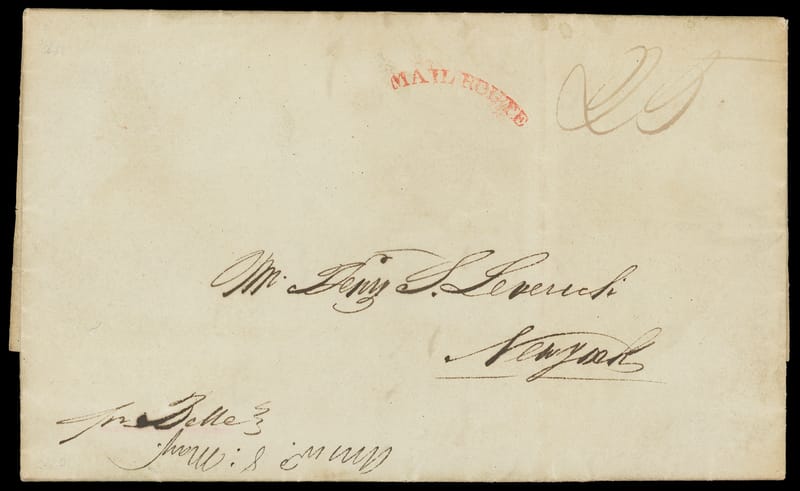 MAIL ROUTE
25
Mr. Henry S. Leverich
New york
pr Belle